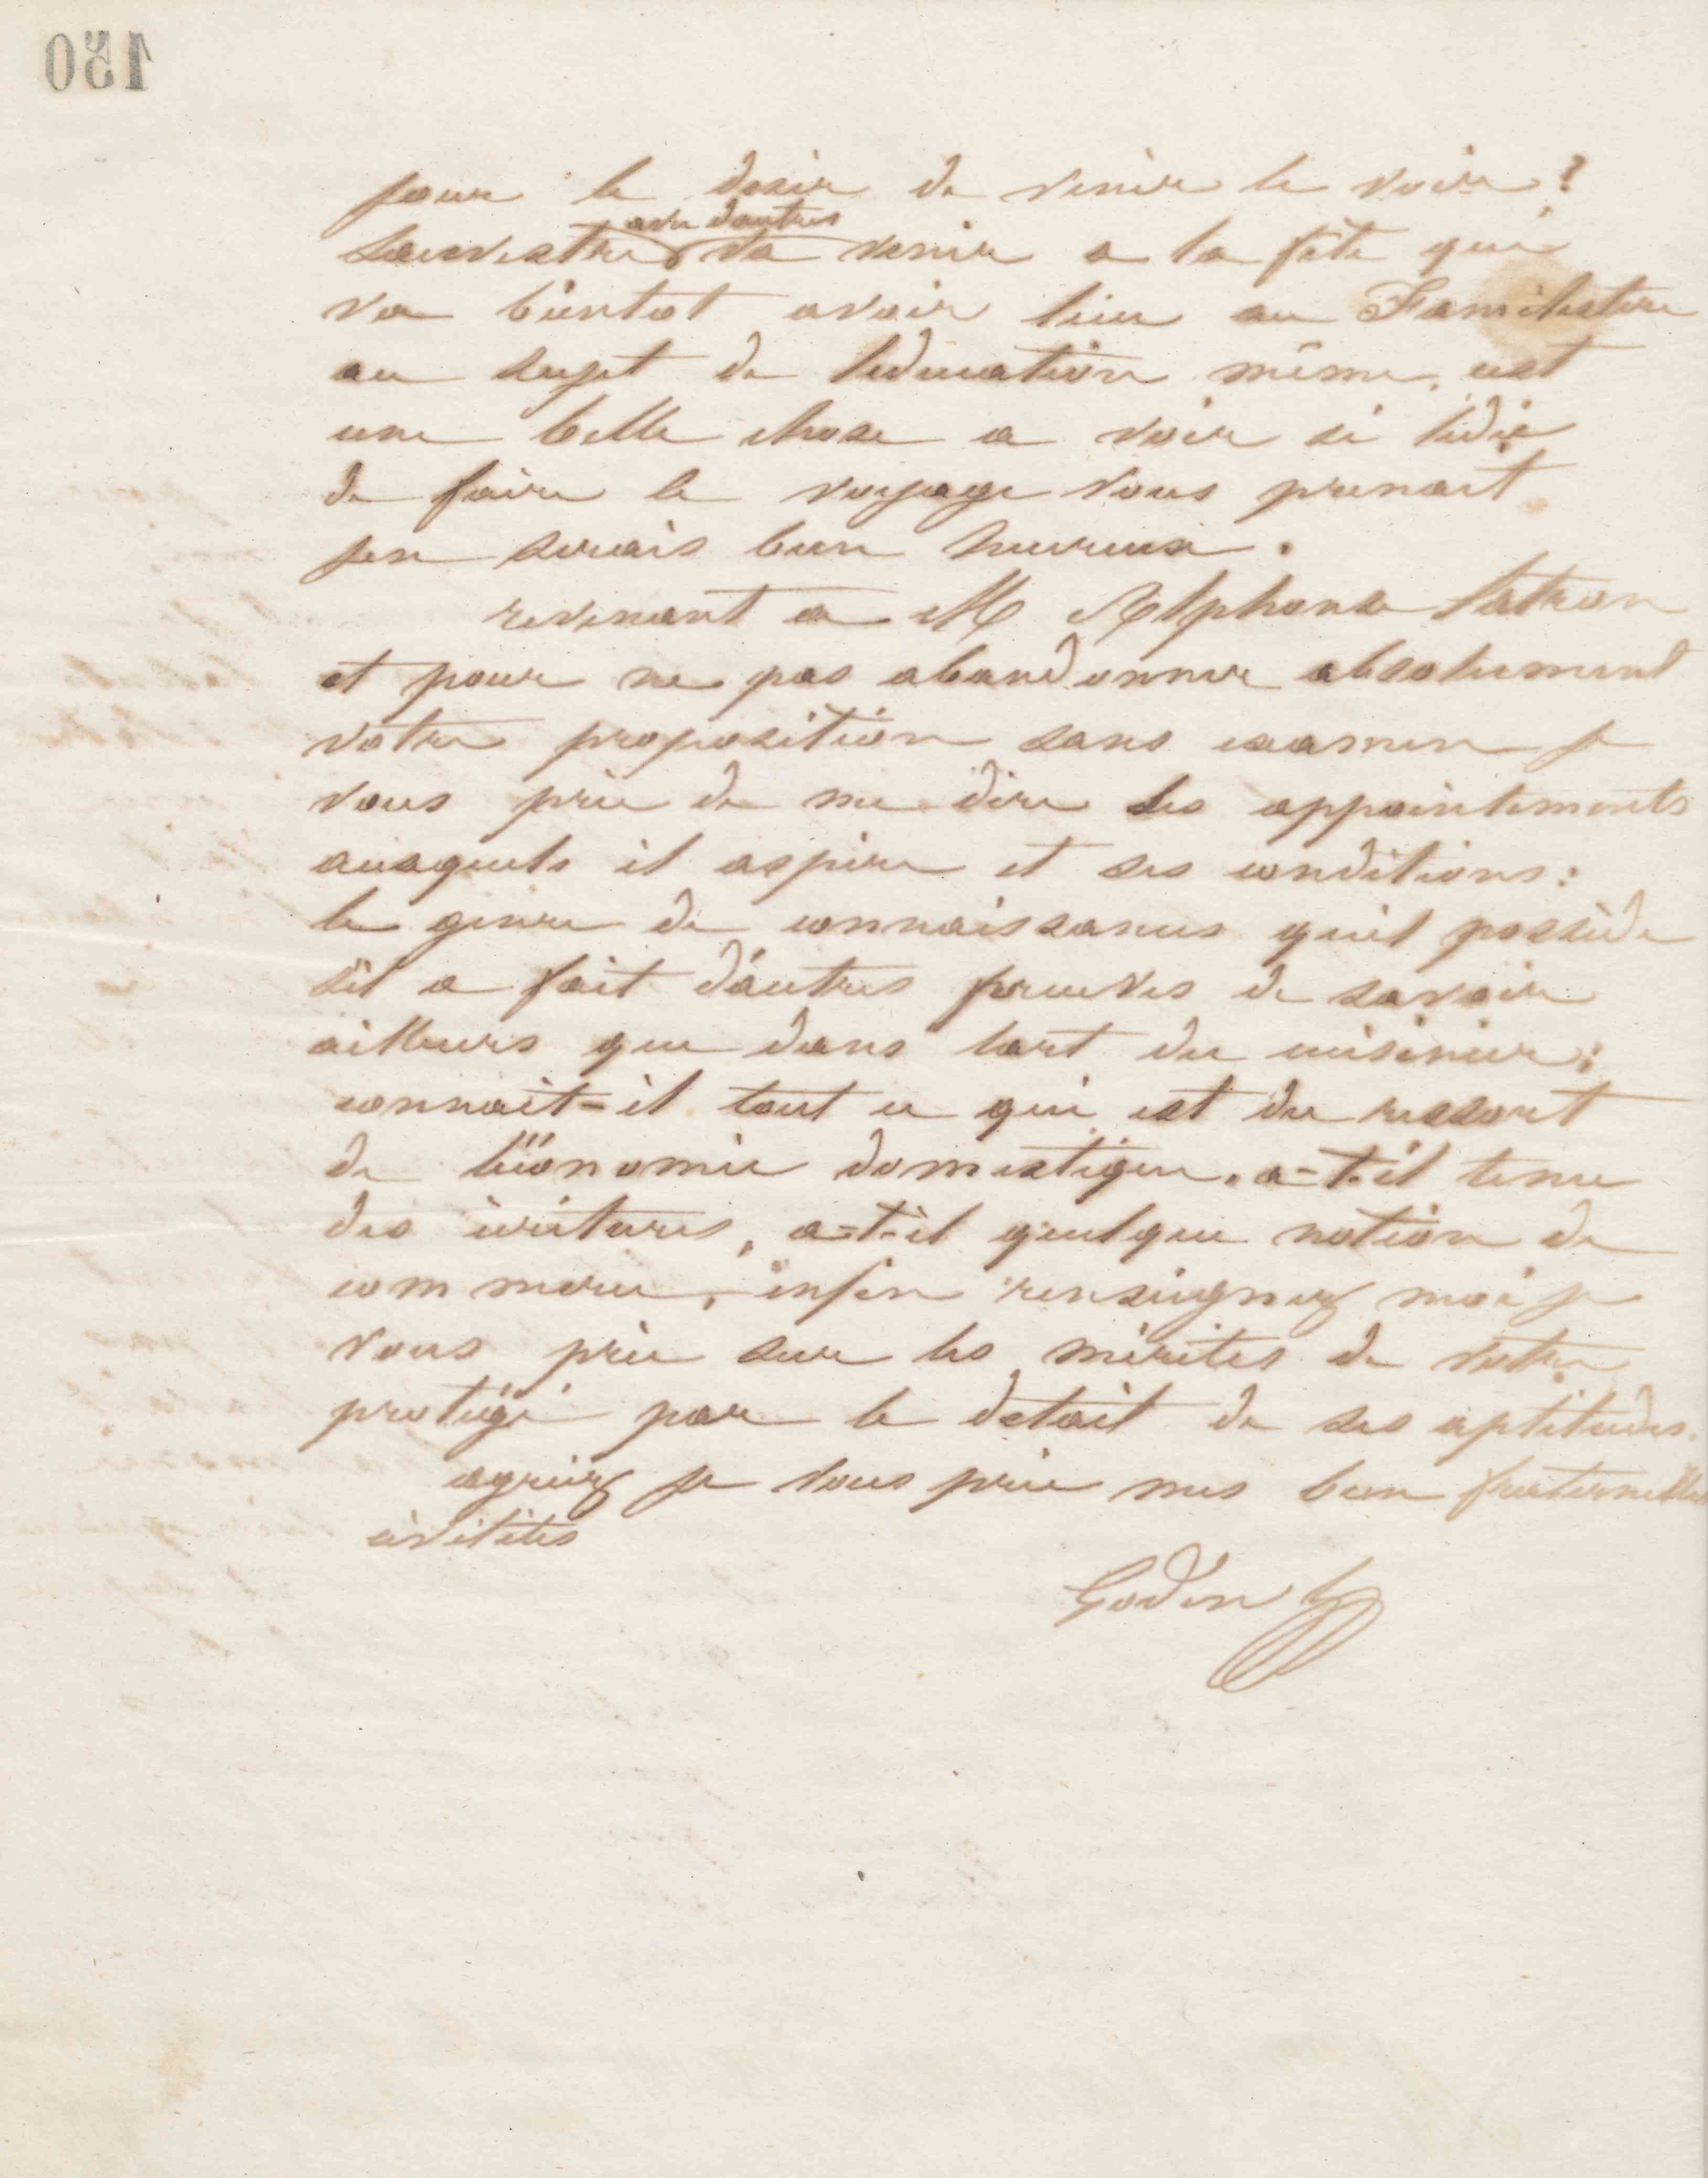 150
pour le desir de venir le voir?
avec dautres
Sauvestre va venir a la fête qui
va bientot avoir lieu au Familistère
au sujet de leducation même, cest
une belle chose a voir si lidée
de faire le voyage vous prenait
jen serais bien heureux.
revenant a M Alphonse Latron
et pour ne pas abandonner absolument
votre proposition sans examen je
vous prie de me dire les appointements
auxquels il aspire et ses conditions:
le genre de connaissances quil possède
s'il a fait d'autres preuves de savoir
ailleurs que dans lart du cuisinier:
connait-il tout ce qui est du ressort
de léconomie domestique, a-t-il tenu
des écritures, a-t-il quelque notion de
commerce, enfin renseignez moi je
vous prie sur les mérites de votre
protégé par le detail de ses aptitudes.
agréez je vous prie mes bien fraternelles
civilités
Godin